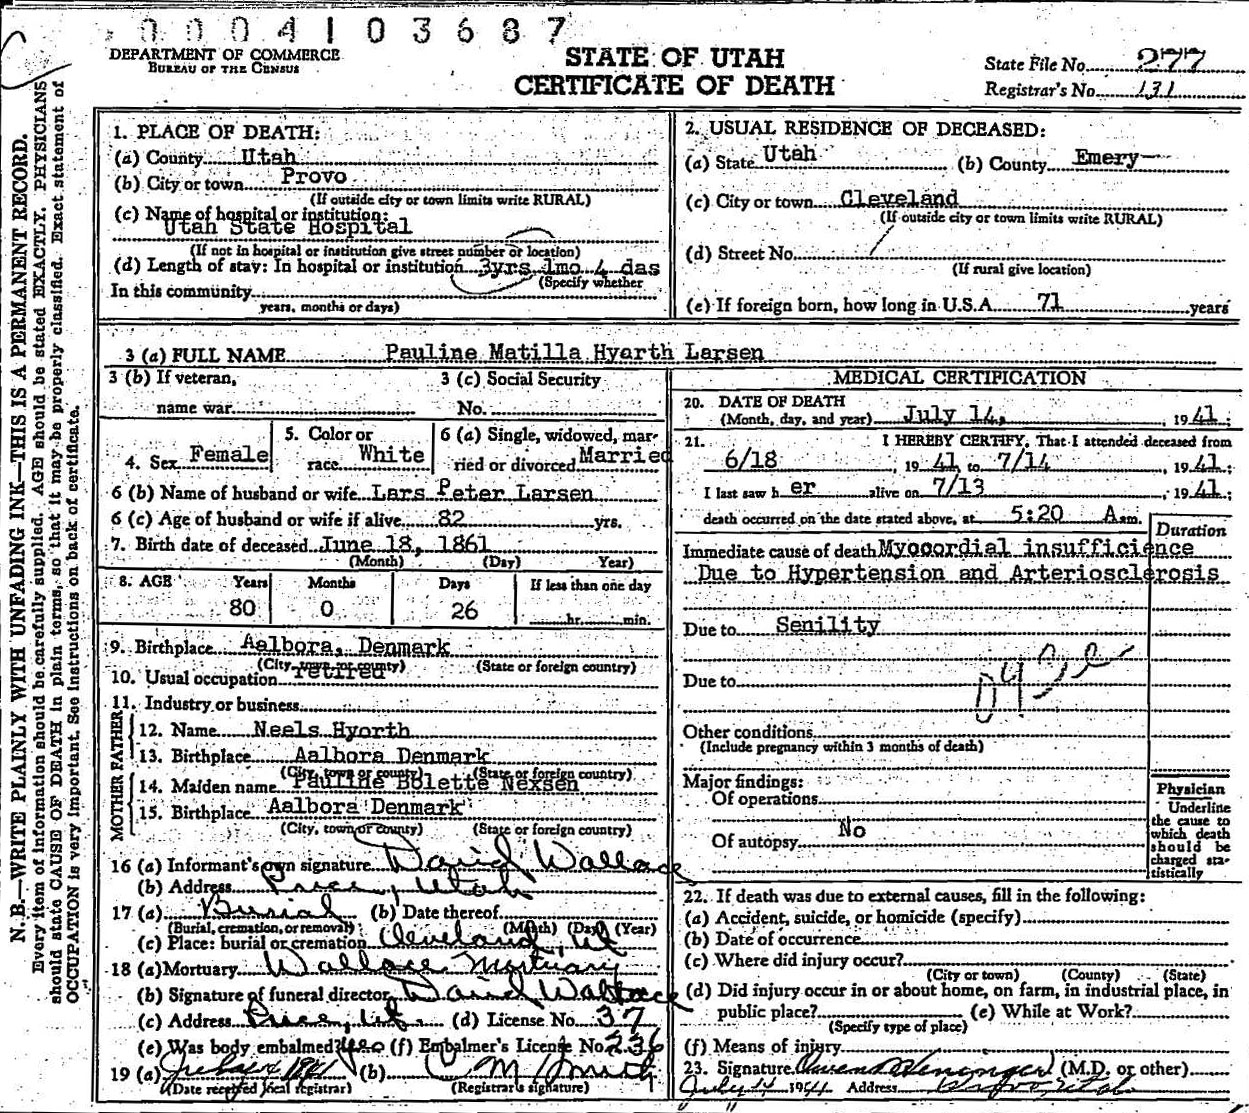 0004103687
DEPARTMENT OF COMMERCE
BUREAU OF THE CENSUS
STATE OF UTAH
CERTIFICATE OF DEATH
State File No. 277
Registrar's No. 131
N. B.—WRITE PLAINLY WITH UNFADING INK—THIS IS A PERMANENT RECORD.
Every item of information should be carefully supplied. AGE should be stated EXACTLY. PHYSICIANS
should state CAUSE OF DEATH in plain terms, so that it may be properly classified. Exact statement of
OCCUPATION is very important. See instructions on back of certificate.
1. PLACE OF DEATH:
(a) County Utah
(b) City or town Provo
(If outside city or town limits write RURAL)
(c) Name of hospital or institution:
Utah State Hospital
(If not in hospital or institution give street number or location)
(d) Length of stay: In hospital or institution 3yrs 1mo 4 das
(Specify whether
In this community
years, months or days)
2. USUAL RESIDENCE OF DECEASED:
(a) State Utah (b) County Emery
(c) City or town Cleveland
(If outside city or town limits write RURAL)
(d) Street No.
(If rural give location)
(e) If foreign born, how long in U.S.A. 71 years
3 (a) FULL NAME Pauline Matilla Hyorth Larsen
3 (b) If veteran, name war
3 (c) Social Security No.
4. Sex Female
5. Color or race White
6 (a) Single, widowed, married or divorced Married
6 (b) Name of husband or wife Lars Peter Larsen
6 (c) Age of husband or wife if alive 82 yrs.
7. Birth date of deceased June 18, 1861
(Month) (Day) Year)
8. AGE Years Months Days If less than one day
80 0 26 hr. min.
9. Birthplace Aalbora, Denmark
(City, town or county) (State or foreign country)
10. Usual occupation retired
11. Industry or business
FATHER
12. Name Neels Hyorth
13. Birthplace Aalbora Denmark
(City, town or county) (State or foreign country)
MOTHER
14. Maiden name Pauline Bolette Nexsen
15. Birthplace Aalbora Denmark
(City, town or county) (State or foreign country)
16 (a) Informant's own signature David Wallace
(b) Address Price, Utah
17 (a) Burial (b) Date thereof
(Burial, cremation, or removal) (Month) (Day) (Year)
(c) Place: burial or cremation Cleveland, Ut
18 (a) Mortuary Wallace Mortuary
(b) Signature of funeral director David Wallace
(c) Address Price, Ut. (d) License No. 37
(e) Was body embalmed? yes (f) Embalmer's License No. 236
19 (a) 1941 (b) C M Smith
(Date received local registrar) (Registrar's signature)
MEDICAL CERTIFICATION
20. DATE OF DEATH
(Month, day, and year) July 14, 1941;
21. I HEREBY CERTIFY, That I attended deceased from
6/18, 1941 to 7/14, 1941;
I last saw her alive on 7/13, 1941;
death occurred on the date stated above, at 5:20 A m.
Duration
Immediate cause of death Myocordial insufficience
Due to Hypertension and Arteriosclerosis
Due to Senility
Due to
Other conditions
(Include pregnancy within 3 months of death)
Major findings:
Of operations
Of autopsy No
Physician
Underline
the cause to
which death
should be
charged sta-
tistically
22. If death was due to external causes, fill in the following:
(a) Accident, suicide, or homicide (specify)
(b) Date of occurrence
(c) Where did injury occur?
(City or town) (County) (State)
(d) Did injury occur in or about home, on farm, in industrial place, in
public place? (e) While at Work?
(Specify type of place)
(f) Means of injury
23. Signature (M.D. or other)
July 14 1941 Address Provo Utah